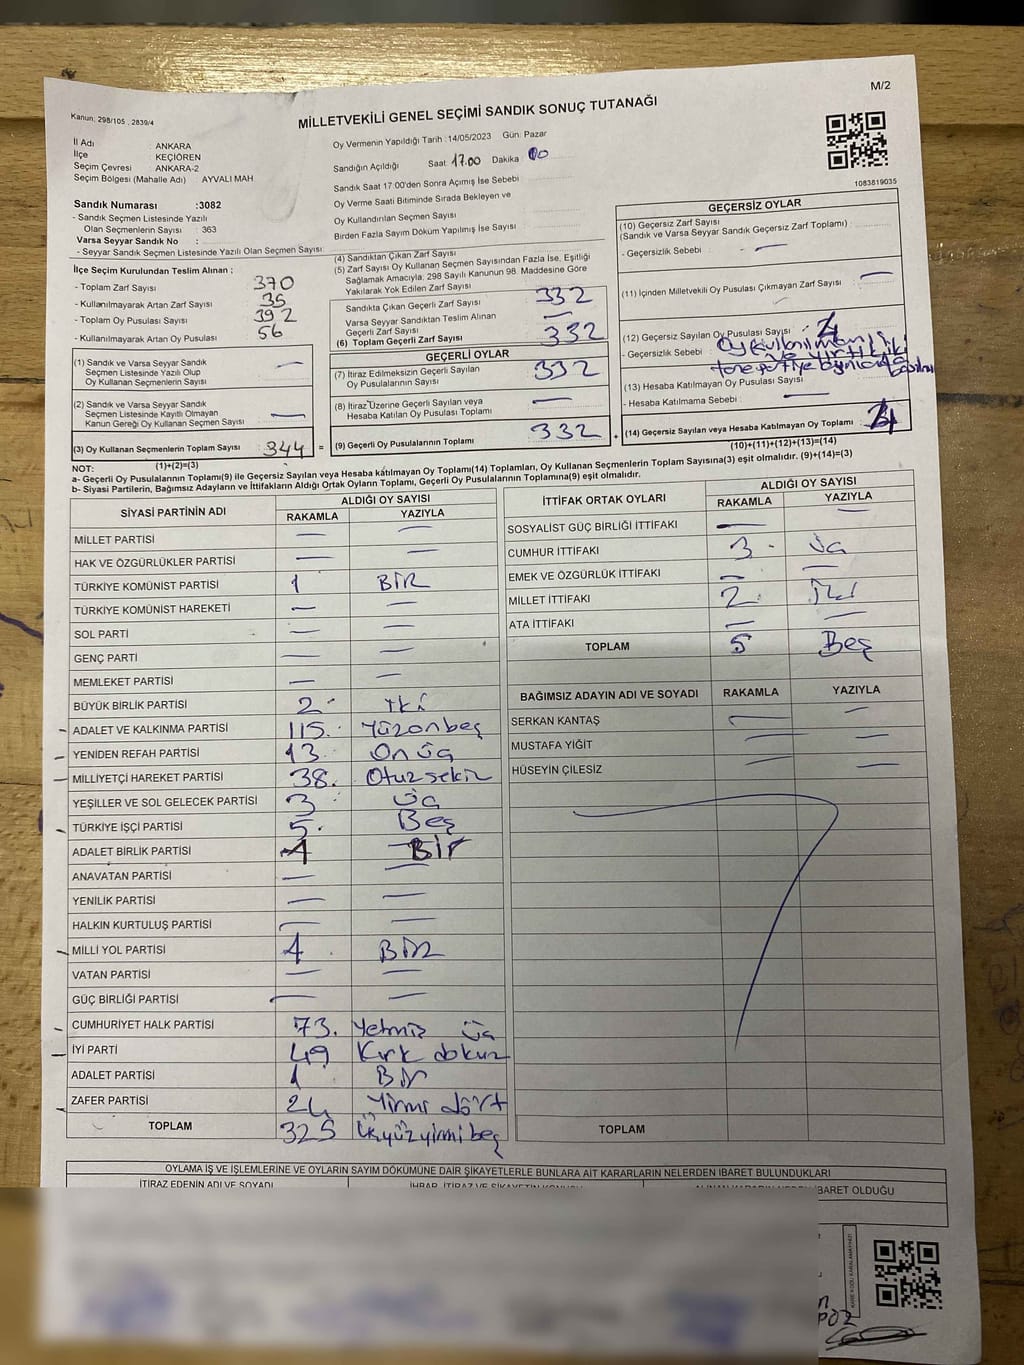 M/2
Kanun: 298/105 , 2839/4
MİLLETVEKİLİ GENEL SEÇİMİ SANDIK SONUÇ TUTANAĞI
İl Adı : ANKARA
İlçe : KEÇİÖREN
Seçim Çevresi : ANKARA-2
Seçim Bölgesi (Mahalle Adı) : AYVALI MAH
Sandık Numarası :3082
- Sandık Seçmen Listesinde Yazılı
Olan Seçmenlerin Sayısı : 363
Varsa Seyyar Sandık No :
- Seyyar Sandık Seçmen Listesinde Yazılı Olan Seçmen Sayısı :
Oy Vermenin Yapıldığı Tarih : 14/05/2023 Gün: Pazar
Sandığın Açıldığı Saat 17.00 Dakika 00
Sandık Saat 17:00'den Sonra Açımış İse Sebebi
Oy Verme Saati Bitiminde Sırada Bekleyen ve
Oy Kullandırılan Seçmen Sayısı
Birden Fazla Sayım Döküm Yapılmış İse Sayısı
1083819035
İlçe Seçim Kurulundan Teslim Alınan :
- Toplam Zarf Sayısı 370
- Kullanılmayarak Artan Zarf Sayısı 35
- Toplam Oy Pusulası Sayısı 392
- Kullanılmayarak Artan Oy Pusulası 56
(1) Sandık ve Varsa Seyyar Sandık
Seçmen Listesinde Yazılı Olup
Oy Kullanan Seçmenlerin Sayısı —
(2) Sandık ve Varsa Seyyar Sandık
Seçmen Listesinde Kayıtlı Olmayan
Kanun Gereği Oy Kullanan Seçmen Sayısı —
(3) Oy Kullanan Seçmenlerin Toplam Sayısı 344
(1)+(2)=(3)
(4) Sandıktan Çıkan Zarf Sayısı
(5) Zarf Sayısı Oy Kullanan Seçmen Sayısından Fazla İse, Eşitliği
Sağlamak Amacıyla; 298 Sayılı Kanunun 98. Maddesine Göre
Yakılarak Yok Edilen Zarf Sayısı
Sandıkta Çıkan Geçerli Zarf Sayısı 332
Varsa Seyyar Sandıktan Teslim Alınan
Geçerli Zarf Sayısı —
(6) Toplam Geçerli Zarf Sayısı 332
GEÇERLİ OYLAR
(7) İtiraz Edilmeksizin Geçerli Sayılan
Oy Pusulalarının Sayısı 332
(8) İtiraz Üzerine Geçerli Sayılan veya
Hesaba Katılan Oy Pusulası Toplamı —
= (9) Geçerli Oy Pusulalarının Toplamı 332
GEÇERSİZ OYLAR
(10) Geçersiz Zarf Sayısı
(Sandık ve Varsa Seyyar Sandık Geçersiz Zarf Toplamı) :
- Geçersizlik Sebebi : —
(11) İçinden Milletvekili Oy Pusulası Çıkmayan Zarf Sayısı : —
(12) Geçersiz Sayılan Oy Pusulası Sayısı :
- Geçersizlik Sebebi :
(13) Hesaba Katılmayan Oy Pusulası Sayısı : —
- Hesaba Katılmama Sebebi :
+ (14) Geçersiz Sayılan veya Hesaba Katılmayan Oy Toplamı
(10)+(11)+(12)+(13)=(14)
NOT:
a- Geçerli Oy Pusulalarının Toplamı(9) ile Geçersiz Sayılan veya Hesaba katılmayan Oy Toplamı(14) Toplamları, Oy Kullanan Seçmenlerin Toplam Sayısına(3) eşit olmalıdır. (9)+(14)=(3)
b- Siyasi Partilerin, Bağımsız Adayların ve İttifakların Aldığı Ortak Oyların Toplamı, Geçerli Oy Pusulalarının Toplamına(9) eşit olmalıdır.
SİYASİ PARTİNİN ADI ALDIĞI OY SAYISI
RAKAMLA YAZIYLA
MİLLET PARTİSİ — —
HAK VE ÖZGÜRLÜKLER PARTİSİ — —
TÜRKİYE KOMÜNİST PARTİSİ 1 BİR
TÜRKİYE KOMÜNİST HAREKETİ — —
SOL PARTİ — —
GENÇ PARTİ — —
MEMLEKET PARTİSİ — —
BÜYÜK BİRLİK PARTİSİ 2 İki
ADALET VE KALKINMA PARTİSİ 115 Yüzonbeş
YENİDEN REFAH PARTİSİ 13 On üç
MİLLİYETÇİ HAREKET PARTİSİ 38 Otuzsekiz
YEŞİLLER VE SOL GELECEK PARTİSİ 3 üç
TÜRKİYE İŞÇİ PARTİSİ 5 Beş
ADALET BİRLİK PARTİSİ 1 BİR
ANAVATAN PARTİSİ — —
YENİLİK PARTİSİ — —
HALKIN KURTULUŞ PARTİSİ — —
MİLLİ YOL PARTİSİ 1 BİR
VATAN PARTİSİ — —
GÜÇ BİRLİĞİ PARTİSİ — —
CUMHURİYET HALK PARTİSİ 73 Yetmiş üç
İYİ PARTİ 49 Kırk dokuz
ADALET PARTİSİ 1 Bir
ZAFER PARTİSİ 24 Yirmi dört
TOPLAM 325 Üçyüzyirmibeş
İTTİFAK ORTAK OYLARI ALDIĞI OY SAYISI
RAKAMLA YAZIYLA
SOSYALİST GÜÇ BİRLİĞİ İTTİFAKI — —
CUMHUR İTTİFAKI 3 üç
EMEK VE ÖZGÜRLÜK İTTİFAKI — —
MİLLET İTTİFAKI 2 İki
ATA İTTİFAKI — —
TOPLAM 5 Beş
BAĞIMSIZ ADAYIN ADI VE SOYADI RAKAMLA YAZIYLA
SERKAN KANTAŞ — —
MUSTAFA YİĞİT — —
HÜSEYİN ÇİLESİZ — —
TOPLAM
OYLAMA İŞ VE İŞLEMLERİNE VE OYLARIN SAYIM DÖKÜMÜNE DAİR ŞİKAYETLERLE BUNLARA AİT KARARLARIN NELERDEN İBARET BULUNDUKLARI
İTİRAZ EDENİN ADI VE SOYADI
İHBAR, İTİRAZ VE ŞİKAYETİN KONUSU
İBARET OLDUĞU